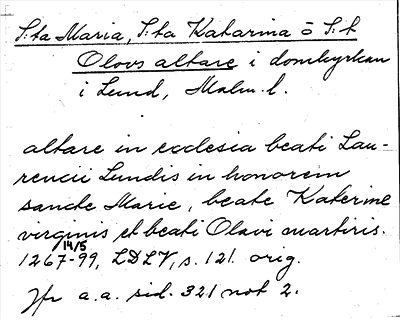 S:ta Maria, S:ta Katarina o S:t
Olovs altare i domkyrkan
i Lund, Malm. l.
altare in ecclesia beati Lau-
rencii Lundis in honorem
sancte Marie, beate Katerine
virginis et beati Olavi martiris.
14/5
1267-99, LDLV, s. 121. orig.
Jfr a.a. sid. 321 not 2.